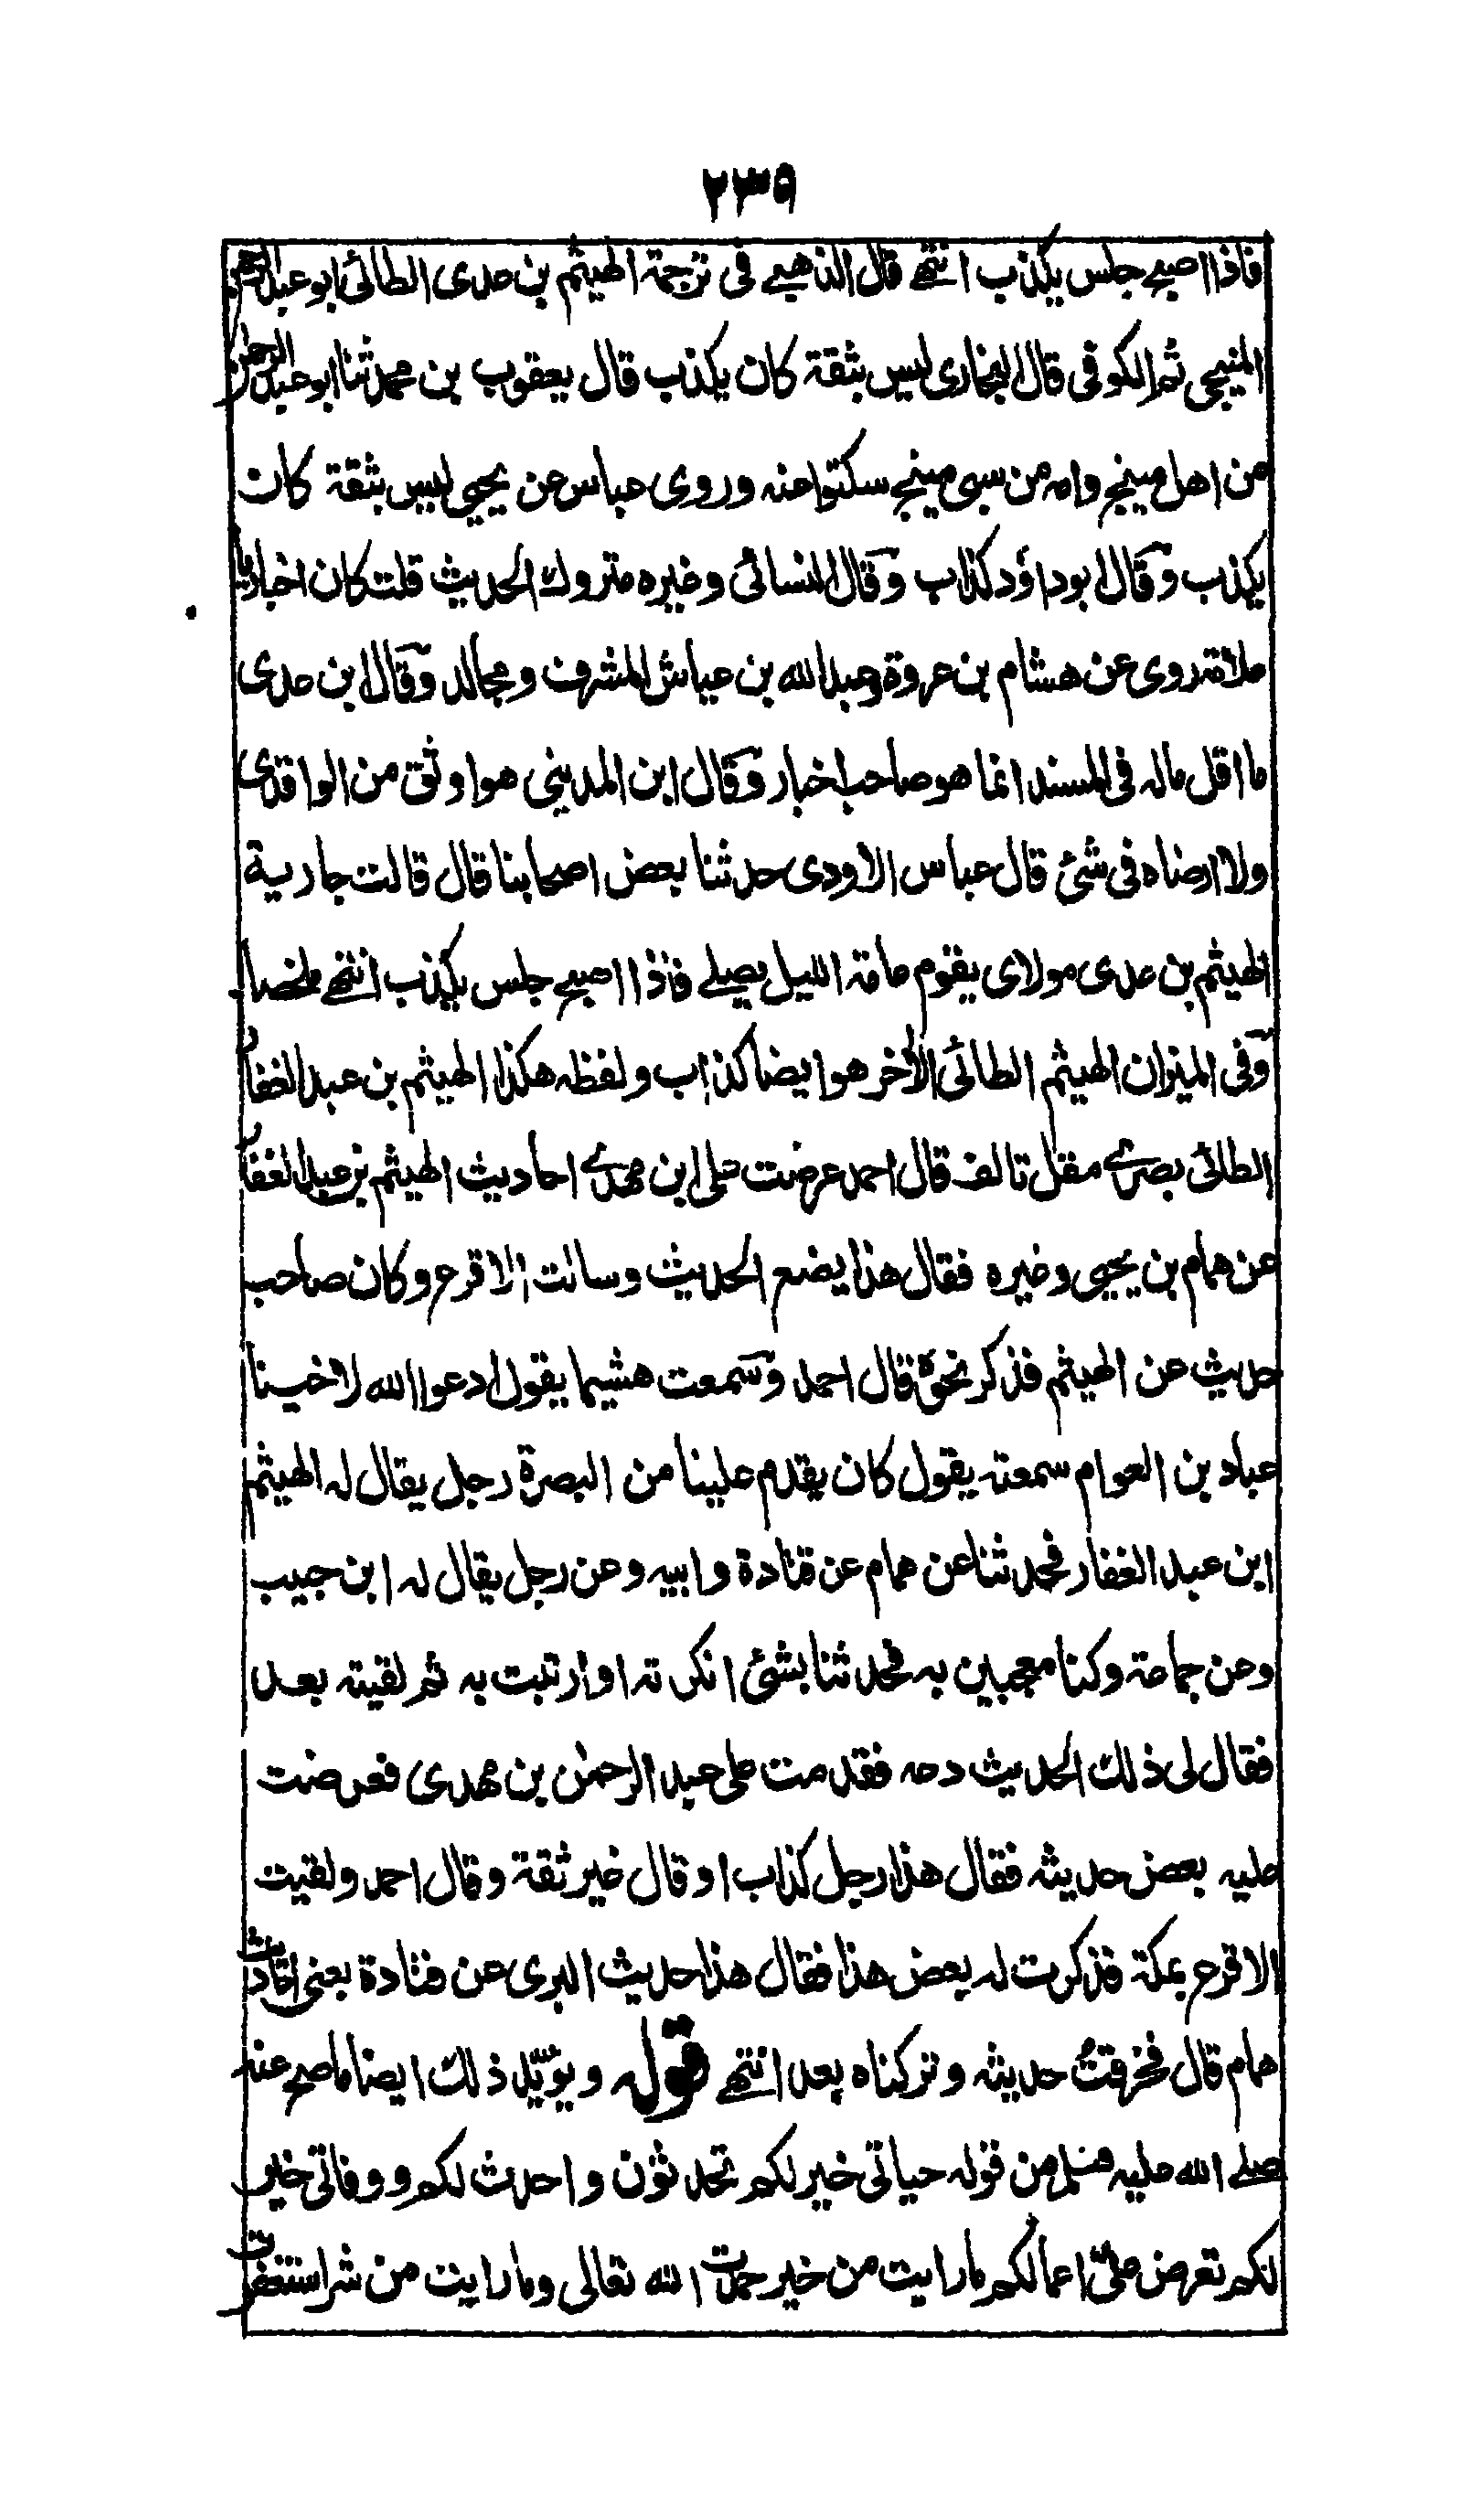 ٢٣٩
فاذا اصبح جلس يكذب انتهى قال الذهبي فى ترجمة الهيثم بن عدى الطائى ابو عبد الرحمن
المنبجى ثم الكوفى قال البخارى ليس بثقة كان يكذب قال يعقوب بن محمد ثنا ابو عبد الرحمن
من اهل منبج وامه من سبى منبج سكتوا عنه وروى عباس عن يحيى ليس بثقة كان
يكذب وقال ابو داؤد كذاب وقال النسائى وغيره متروك الحديث قلت كان اخباريا
علامة روى عن هشام بن عروة وعبد الله بن عياش المشرف ومجالد وقال ابن عدى
ما اقل ماله فى المسند انما هو صاحب اخبار وقال ابن المدينى هو اوثق من الواقدى
ولا ارضاه فى شئ قال عباس الاودى حدثنا بعض اصحابنا قال قالت جارية
الهيثم بن عدى مولاى يقوم عامة الليل يصلے فاذا اصبح جلس يكذب انتهى ملخصا
وفى الميزان الهيثم الطائى الأخر هو ايضا كذاب ولفظه هكذا الهيثم بن عبد الغفار
الطائى بصرے مقل تالف قال احمد عرضت على ابن مهدے احاديث الهيثم بن عبد الغفار
عن همام بن يحيى وغيره فقال هذا يضع الحديث وسالت الاقرع وكان صاحب
حديث عن الهيثم فذكر نحوه قال احمد وسمعت هشيما يقول ادعوا الله لاخينا
عباد بن العوام سمعته يقول كان يقدم علينا من البصرة رجل يقال له الهيثم
ابن عبد الغفار فحدثنا عن همام عن قتادة وابيه وعن رجل يقال له ابن حبيب
وعن جماعة وكنا معجبين به فحدثنا بشئ انكرته او ارتبت به ثم لقيته بعد
فقال لى ذلك الحديث دعه فقدمت على عبد الرحمن بن مهدى فعرضت
عليه بعض حديثه فقال هذا رجل كذاب او قال غير ثقة وقال احمد ولقيت
الاقرع بمكة فذكرت له بعض هذا فقال هذا حديث البرى عن قتادة يعنى احاديث
همام قال فخرقت حديثه وتركناه بعد انتهى قوله ويؤيد ذلك ايضا ما صح عنه
صلے الله عليه وسلم من قوله حياتى خير لكم تحدثون واحدث لكم ووفاتى خير
لكم تعرض على اعمالكم ما رايت من خير حمدت الله تعالى وما رايت من شر استغفرت